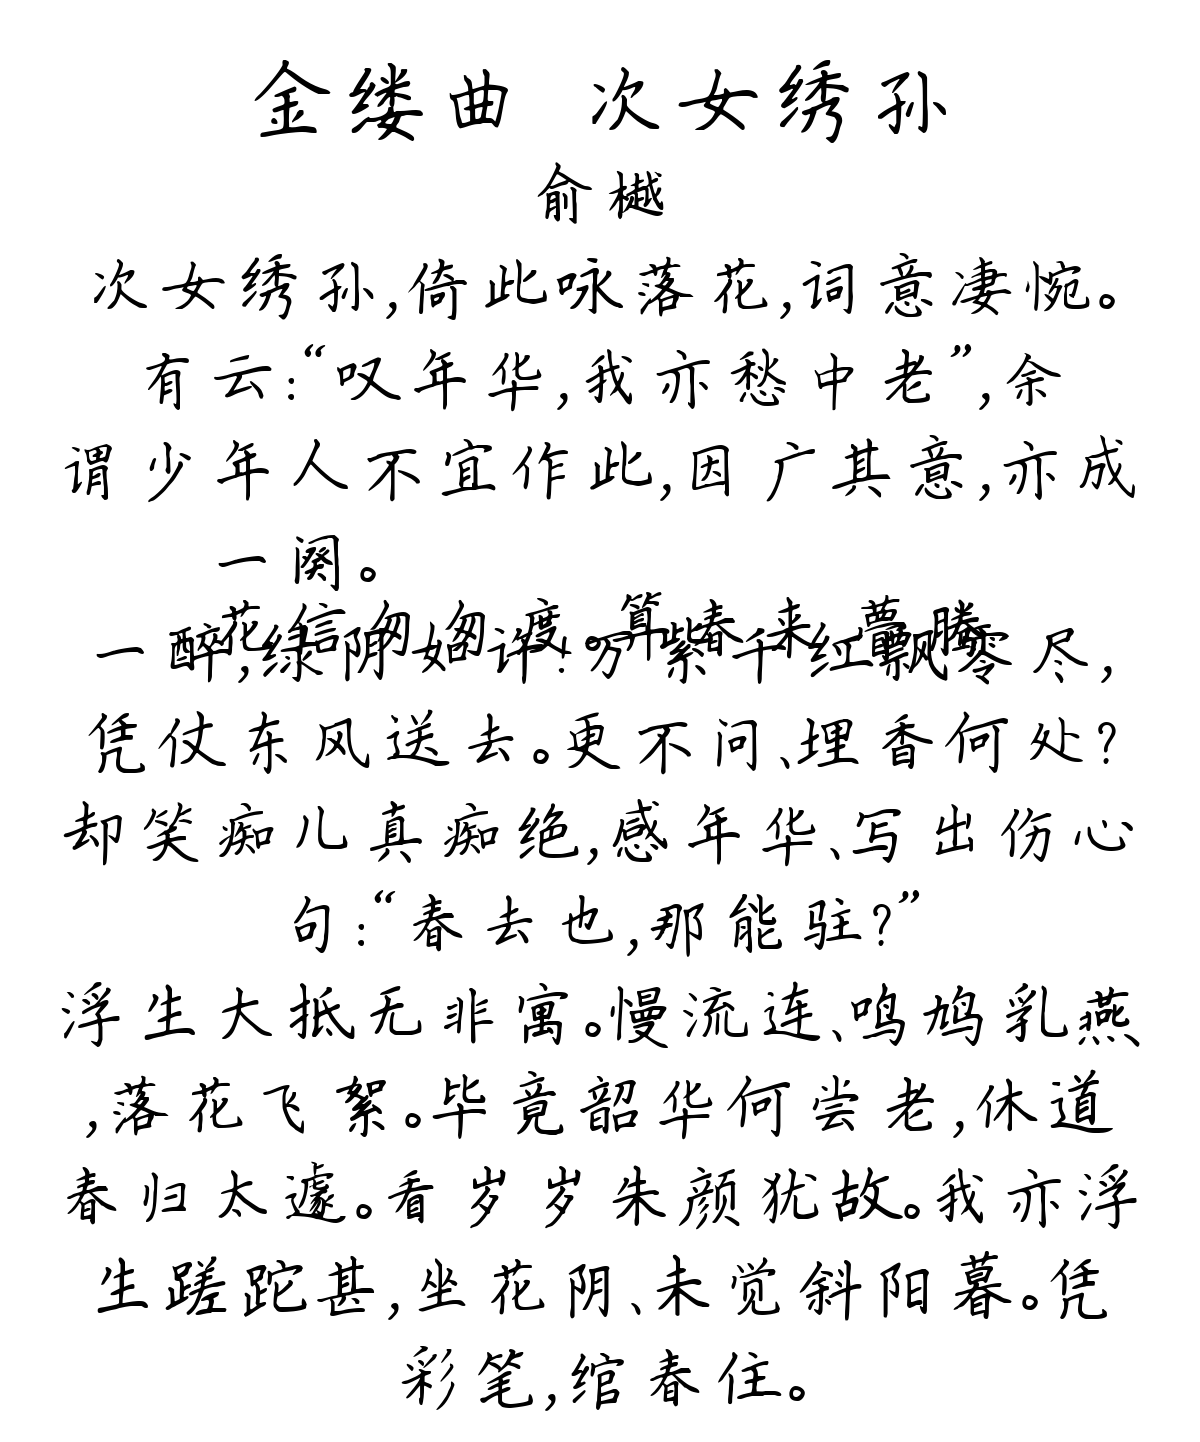 金缕曲 次女绣孙
俞樾
次女绣孙,倚此咏落花,词意凄惋。
有云:“叹年华,我亦愁中老”,余
谓少年人不宜作此,因广其意,亦成
一阕。
花信匆匆度。算春来、瞢腾
一醉,绿阴如许!万紫千红飘零尽,
凭仗东风送去。更不问、埋香何处?
却笑痴儿真痴绝,感年华、写出伤心
句:“春去也,那能驻?”
浮生大抵无非寓。慢流连、鸣鸠乳燕
,落花飞絮。毕竟韶华何尝老,休道
春归太遽。看岁岁朱颜犹故。我亦浮
生蹉跎甚,坐花阴、未觉斜阳暮。凭
彩笔,绾春住。